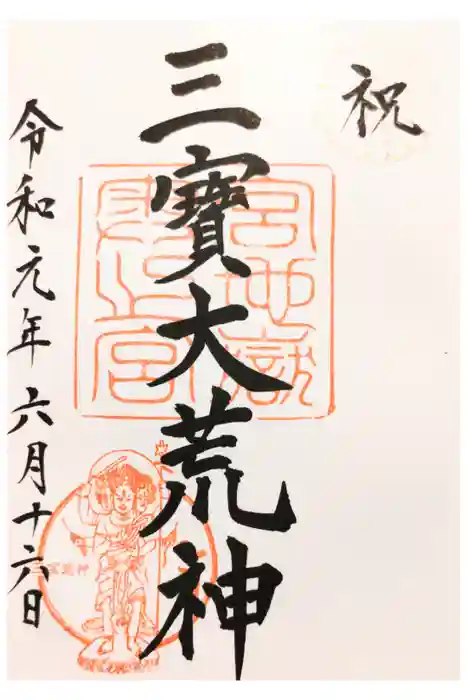 祝
三寶大荒神
令和元年六月十六日
宮地嶽